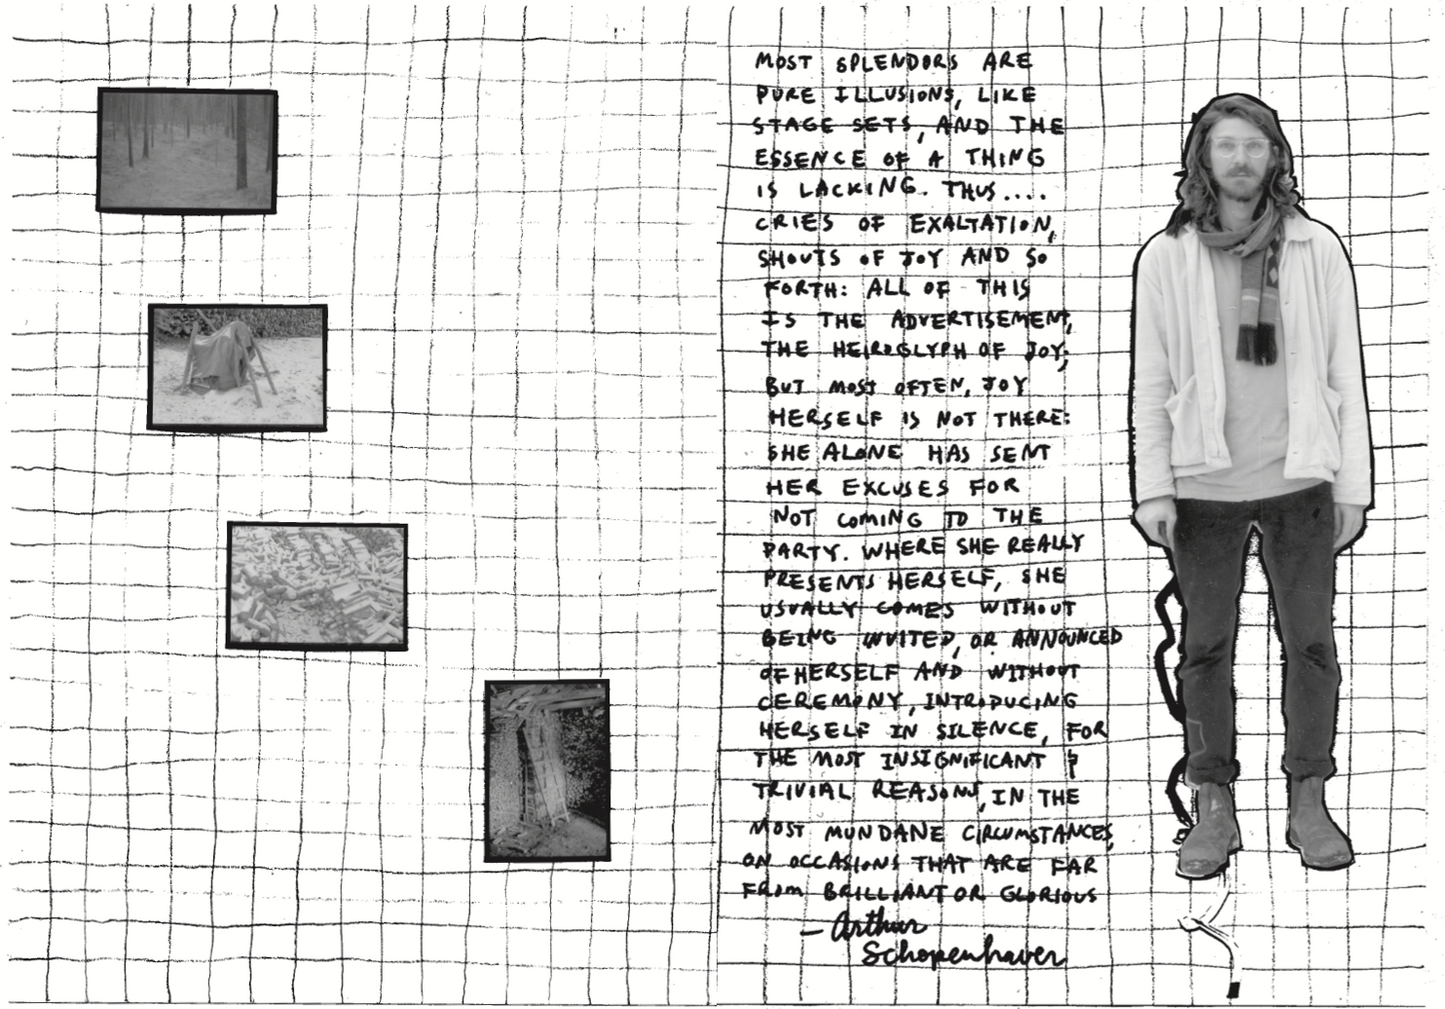 MOST SPLENDORS ARE
PURE ILLUSIONS, LIKE
STAGE SETS, AND THE
ESSENCE OF A THING
IS LACKING. THUS....
CRIES OF EXALTATION,
SHOUTS OF JOY AND SO
FORTH: ALL OF THIS
IS THE ADVERTISEMENT,
THE HEIROGLYPH OF JOY;
BUT MOST OFTEN, JOY
HERSELF IS NOT THERE:
SHE ALONE HAS SENT
HER EXCUSES FOR
NOT COMING TO THE
PARTY. WHERE SHE REALLY
PRESENTS HERSELF, SHE
USUALLY COMES WITHOUT
BEING INVITED, OR ANNOUNCED
OF HERSELF AND WITHOUT
CEREMONY, INTRODUCING
HERSELF IN SILENCE, FOR
THE MOST INSIGNIFICANT &
TRIVIAL REASONS, IN THE
MOST MUNDANE CIRCUMSTANCES,
ON OCCASIONS THAT ARE FAR
FROM BRILLIANT OR GLORIOUS
— Arthur
Schopenhauer